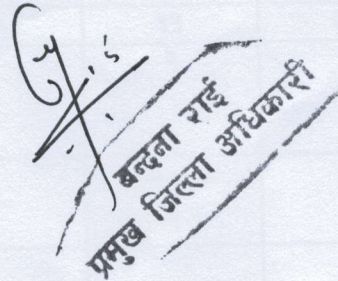 बन्दना राई
प्रमुख जिल्ला अधिकारी